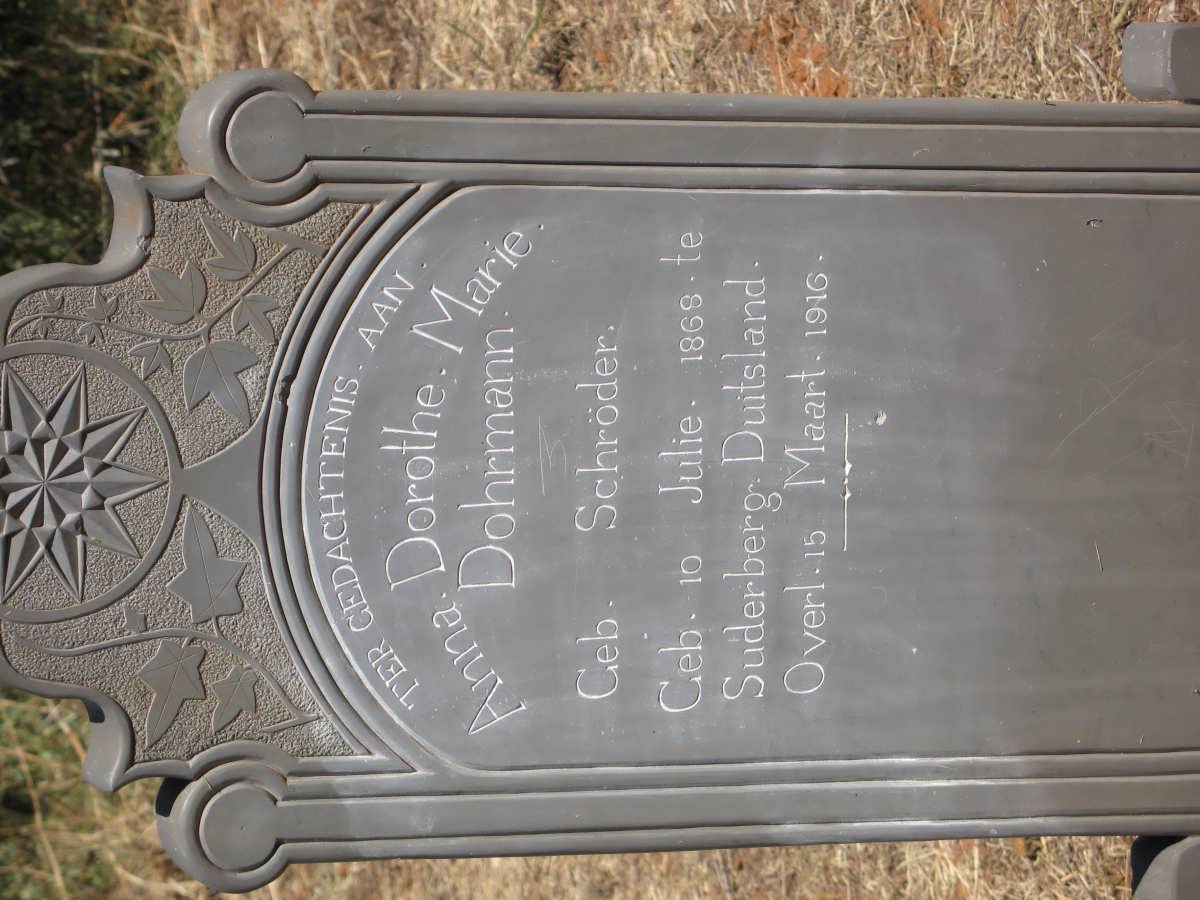 TER GEDACHTENIS. AAN.
Anna. Dorothe. Marie.
Dohrmann.
Geb. Schröder.
Geb. 10 Julie. 1868. te
Suderberg. Duitsland.
Overl. 15 Maart. 1916.